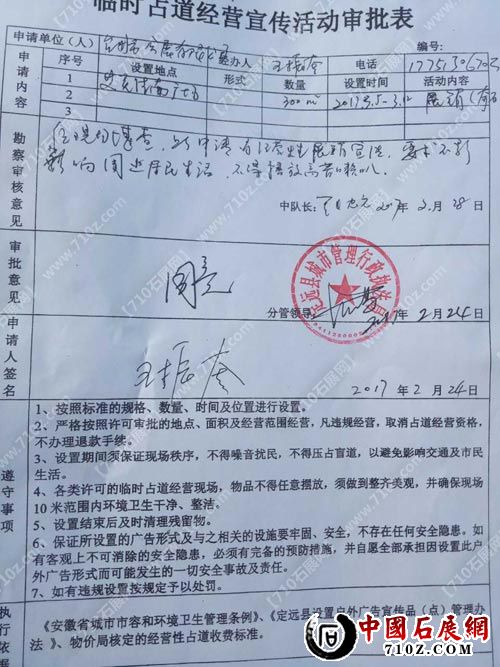 临时占道经营宣传活动审批表
申请单位(人) 经办人 王振奎 电话 编号:
申请内容 序号 设置地点 形式 数量 设置时间 活动内容
1 300m² 展销
2
3
勘察审核意见 经现场勘查,此申请为经营性展销宣传,要求不影
响周边居民生活,不得播放高音喇叭。
中队长: 2017年2月28日
审批意见 周亮
定远县城市管理行政执法局
分管领导: 2017年2月24日
申请人签名 王振奎
2017年2月24日
遵守事项
1、按照标准的规格、数量、时间及位置进行设置。
2、严格按照许可审批的地点、面积及经营范围经营,凡违规经营,取消占道经营资格,
不办理退款手续。
3、设置期间须保证现场秩序,不得噪音扰民,不得压占盲道,以避免影响交通及市民
生活。
4、各类许可的临时占道经营现场,物品不得任意摆放,须做到整齐美观,并确保现场
10米范围内环境卫生干净、整洁。
5、设置结束后及时清理残留物。
6、保证所设置的广告形式及与之相关的设施要牢固、安全,不存在任何安全隐患。如
有客观上不可消除的安全隐患,必须有完备的预防措施,并自愿全部承担因设置此户
外广告形式而可能发生的一切安全事故及责任。
7、如有违规设置按规定予以处罚。
执行依
《安徽省城市市容和环境卫生管理条例》、《定远县设置户外广告宣传品(点)管理办
法》、物价局核定的经营性占道收费标准。
中國石展網
710Z.com